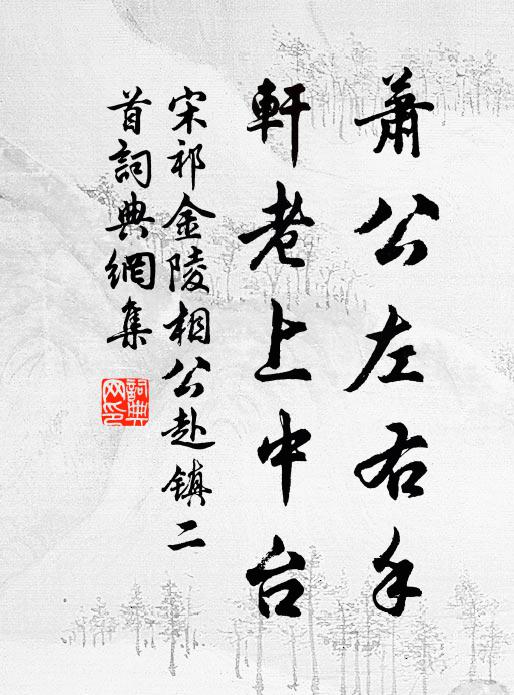 蕭公左右手
軒老上中台
宋祁金陵相公赴鎮二
首詞典網集
詞典
网印